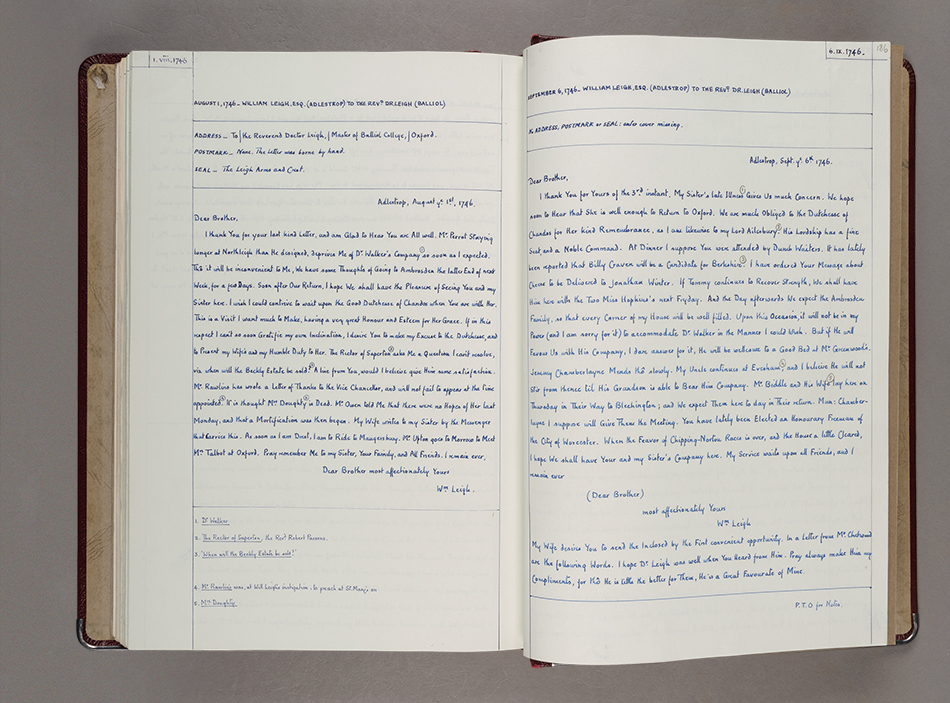 1. VIII. 1746
AUGUST 1, 1746 - WILLIAM LEIGH, ESQ. (ADLESTROP) TO THE REVD. DR. LEIGH (BALLIOL)
ADDRESS - To / the Reverend Doctor Leigh, / Master of Balliol College, / Oxford.
POSTMARK - None. The letter was borne by hand.
SEAL - The Leigh Arms and Crest.
Adlestrop, August ye. 1st, 1746.
Dear Brother,
I thank You for your last kind Letter, and am Glad to Hear You are All well. Mr. Perrot Staying
longer at Northleigh than He designed, deprives Me of Dr. Walker's Company (1) so soon as I expected.
Tho it will be inconvenient to Me, We have some Thoughts of Going to Ambrosden the latter End of next
Week, for a few Days. Soon after Our Return, I hope We shall have the Pleasure of Seeing You and my
Sister here. I wish I could contrive to wait upon the Good Dutchess of Chandos when You are with Her.
This is a Visit I want much to Make, having a very great Honour and Esteem for Her Grace. If in this
respect I can't so soon Gratifie my own Inclination, I desire You to make my Excuse to the Dutchess, and
to Present my Wife's and my Humble Duty to Her. The Rector of Saperton (2) asks Me a Question I can't resolve,
viz. when will the Beckly Estate be sold? (3) A line from You, would I believe give Him some satisfaction.
Mr. Rawlins has wrote a Letter of Thanks to the Vice Chancellor, and will not fail to appear at the Time
appointed. (4) It is thought Mrs. Doughty (5) is Dead. Mr. Owen told Me that there were no Hopes of Her last
Monday, and that a Mortification was then begun. My Wife writes to my Sister by the Messenger
that Carries this. As soon as I am Drest, I am to Ride to Maugersbury. Mr. Upton goes to Morrow to Meet
Mrs. Talbot at Oxford. Pray remember Me to my Sister, Your Family, and All Friends. I remain ever,
Dear Brother most affectionately Yours
Wm. Leigh.
1. Dr. Walker
2. The Rector of Saperton, the Revd. Robert Parsons.
3. "When will the Beckly Estate be sold?"
4. Mr. Rawlins was, at Will Leigh's instigation, to preach at St. Mary's on
5. Mrs. Doughty
6. IX. 1746.
186
SEPTEMBER 6, 1746 - WILLIAM LEIGH, ESQ. (ADLESTROP) TO THE REVD. DR. LEIGH (BALLIOL)
ADDRESS, POSTMARK or SEAL: outer cover missing.
Adlestrop, Sept. ye. 6th, 1746.
Dear Brother,
I thank You for Yours of the 3rd instant. My Sister's late Illness (1) Gives Us much Concern. We hope
soon to Hear that She is well enough to Return to Oxford. We are much Obliged to the Dutchess of
Chandos for Her kind Remembrance, as I am likewise to my Lord Ailesbury. (2) His Lordship has a fine
Seat, and a Noble Command. At Dinner I suppose You were attended by Dumb Waiters. It has lately
been reported that Billy Craven will be a Candidate for Berkshire. (3) I have ordered Your Message about
Cheese to be Delivered to Jonathan Winter. If Tommy continues to Recover Strength, We shall have
Him here with the Two Miss Hopkins's next Fryday. And the Day afterwards We expect the Ambrosden
Family, so that every Corner of my House will be well filled. Upon this Occasion, it will not be in my
Power (and I am sorry for it) to accommodate Dr. Walker in the Manner I could Wish. But if He will
Favour Us with His Company, I dare answer for it, He will be wellcome to a Good Bed at Mr. Greenwood's.
Jeremy Chamberlayne Mends tho' slowly. My Uncle continues at Evesham, (4) and I believe He will not
Stir from thence till His Grandson is able to Bear Him Company. Mr. Biddle and His Wife (5) lay here on
Thursday in Their Way to Blechington; and We expect Them here to day in Their Return. Mun: Chamber-
layne I suppose will Give Them the Meeting. You have lately been Elected an Honourary Freeman of
the City of Worcester. When the Feavor of Chipping-Norton Races is over, and the House a little Cleared,
I hope We shall Have Your and my Sister's Company here. My Service waits upon all Friends, and I
remain ever
(Dear Brother)
most affectionately Yours
Wm. Leigh
My Wife desires You to send the Inclosed by the First convenient opportunity. In a Letter from Mr. Chetwood
are the following Words. I hope Dr. Leigh was well when You Heard from Him. Pray always make Him my
Compliments, for tho He is little the better for Them, He is a Great Favourite of Mine.
P.T.O for Notes